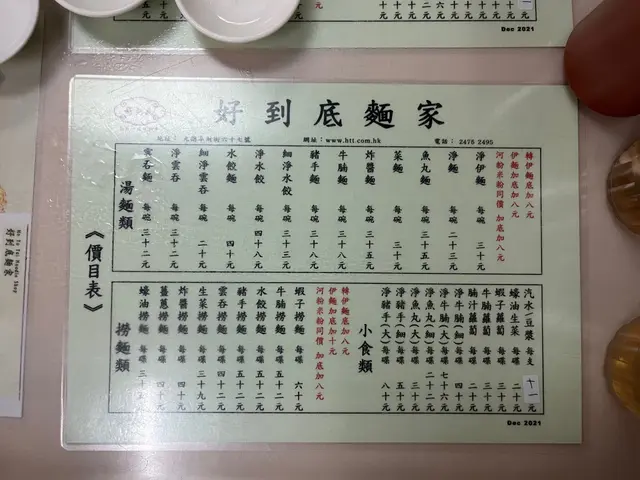 Dec 2021
好到底麵家
地址：元朗阜財街六十七號
網址：www.htt.com.hk
電話：2476 2495
《價目表》
湯麵類
雲吞麵 每碗 三十二元
淨雲吞 每碗 三十二元
細淨雲吞 二十元
水餃麵 每碗 四十元
淨水餃 每碗 四十八元
細淨水餃 每碗 三十元
豬手麵 每碗 三十八元
牛腩麵 每碗 三十八元
炸醬麵 每碗 三十五元
菜麵 每碗 三十元
魚丸麵 每碗 三十五元
淨麵 每碗 元
淨伊麵 每碗 三十元
河粉米粉同價 加底加八元
伊麵加底加八元
轉伊麵底加八元
撈麵類
蠔油撈麵 每碟 三十
薑蔥撈麵 每碟 四十元
炸醬撈麵 每碟 四十元
生菜撈麵 每碟 三十九元
雲吞撈麵 每碟 四十元
豬手撈麵 每碟 五十元
水餃撈麵 每碟 五十元
牛腩撈麵 每碟 五十元
蝦子撈麵 每碟 六十元
河粉米粉同價 加底加八元
伊麵加底加十元
轉伊麵底加八元
小食類
淨豬手(大) 每碟 八十元
淨豬手(細) 每碟 五十元
淨魚丸(大) 每碟 三十元
淨魚丸(細) 每碟 二十二元
淨牛腩(大) 每碟 七十六元
淨牛腩(細) 每碟 四十元
腩汁蘿蔔 每碟 二十元
牛腩蘿蔔 每碟 三十元
蝦子蘿蔔 每碟 三十元
蠔油生菜 每碟 二十元
汽水/豆漿 每支 十一元
Dec 2021
Ho To Tai Noodle Shop
好到底麵家